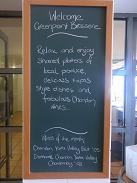 Welcome
Greenpoint Brasserie
Relax and enjoy
shared platters of
local produce,
delicious tapas
style dishes and
fabulous Chandon
wines
Wines of the month
Chandon Yarra Valley Brut
Domaine Chandon Yarra Valley
Chardonnay